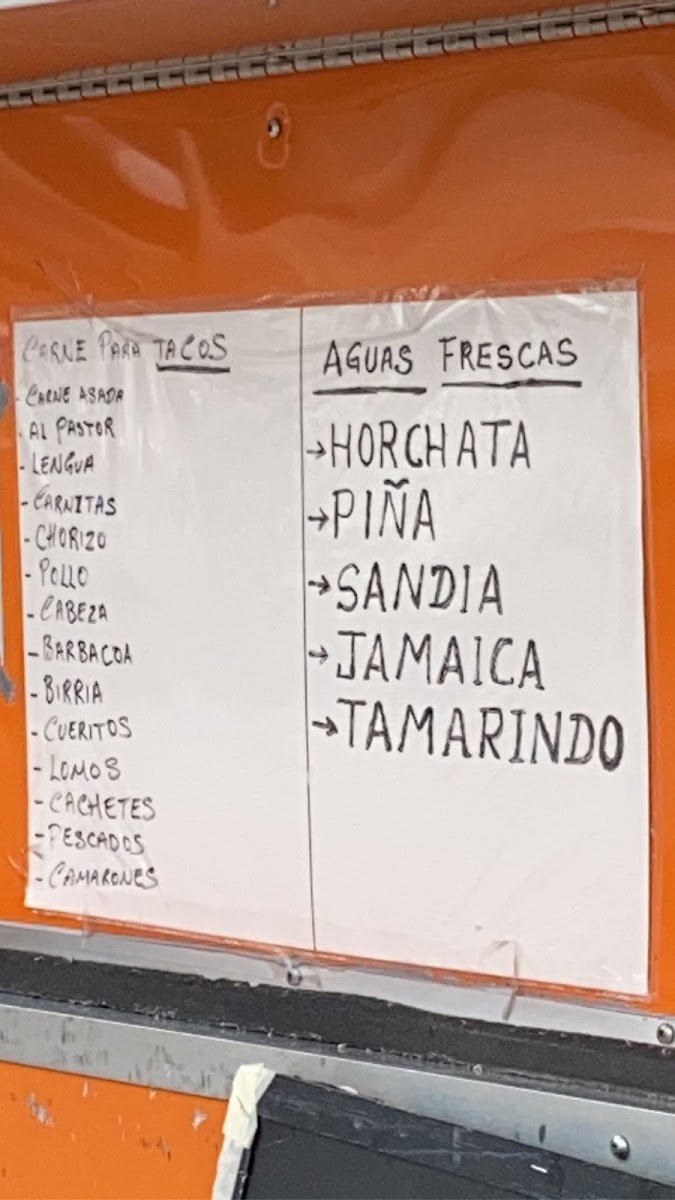 CARNE PARA TACOS
- CARNE ASADA
- AL PASTOR
- LENGUA
- CARNITAS
- CHORIZO
- POLLO
- CABEZA
- BARBACOA
- BIRRIA
- CUERITOS
- LOMOS
- CACHETES
- PESCADOS
- CAMARONES
AGUAS FRESCAS
→HORCHATA
→PIÑA
→SANDIA
→JAMAICA
→TAMARINDO